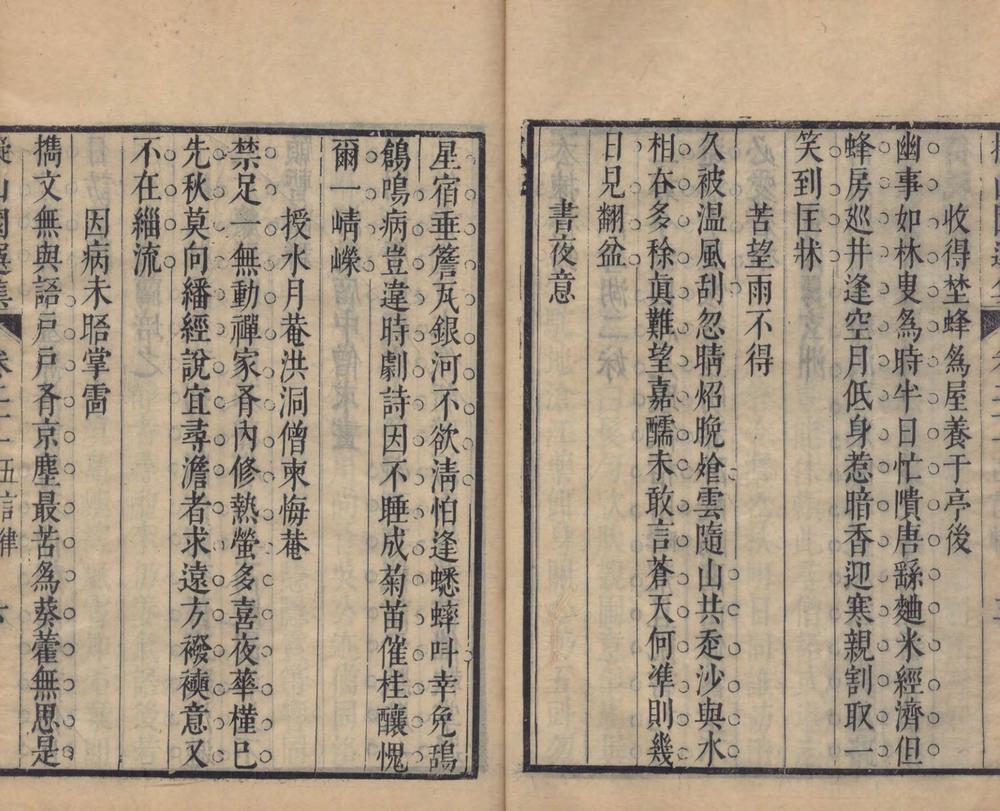 收得埜蜂為屋養于亭後
幽事如林叟為時半日忙隤唐繇麯米經濟但
蜂房巡井逢空月低身惹暗香迎寒親割取一
笑到匡牀
苦望雨不得
久被温風刮忽睛炤晚熗雲隨山共兀沙與水
相吞多稌真難望嘉醹未敢言蒼天何準則幾
日見翻盆
書夜意
星宿垂簷瓦銀河不欲淸怕逢蟋蟀叶幸免鴰
鶬鳴病豈違時劇詩因不睡成菊苗催桂釀愧
爾一崝嶸
授水月菴洪洞僧柬悔菴
禁足一無動禪家脊內修熱螢多喜夜蕐槿已
先秋莫向繙經說宜尋澹者求遠方襏襫意又
不在緇流
因病未晤掌雷
擕文無與語戸戸脊京塵最苦為葵藿無思是
五信律